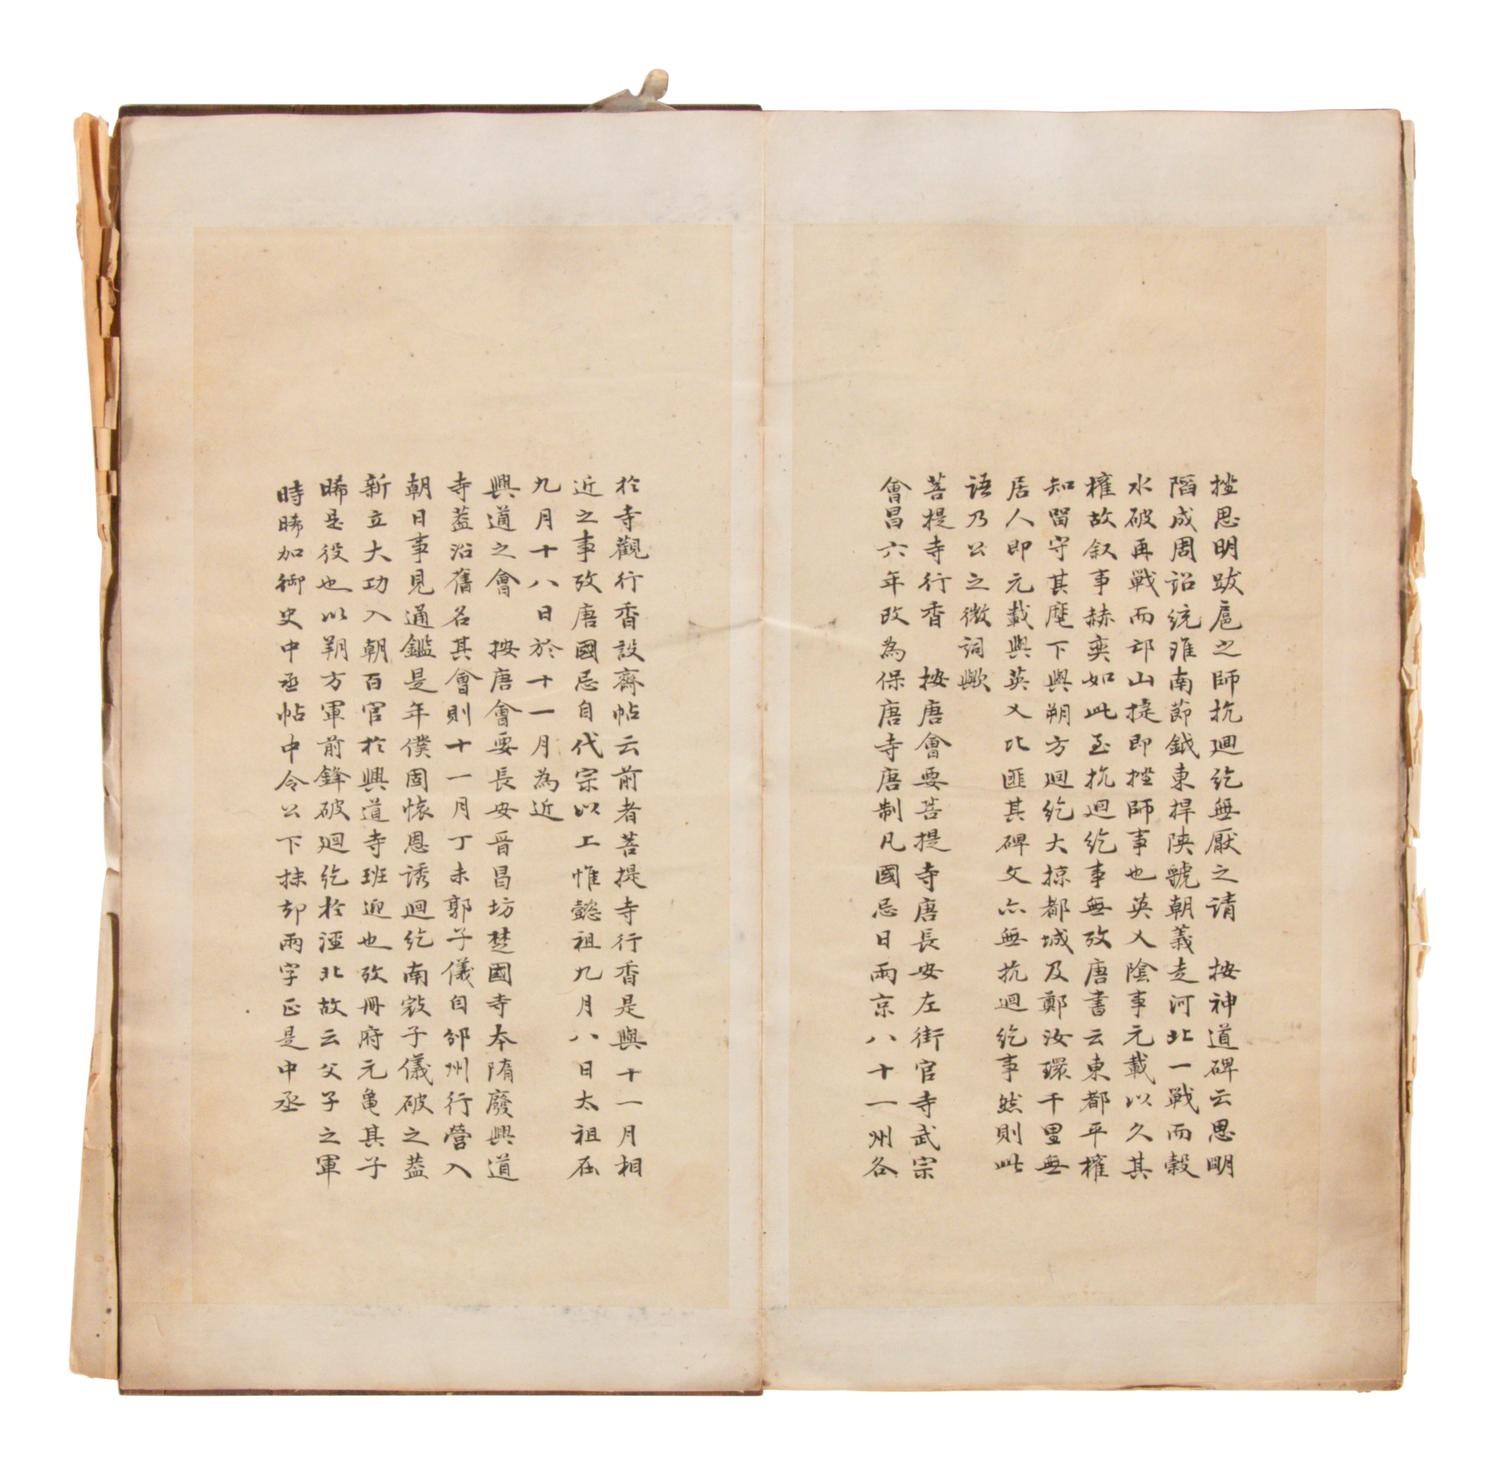 挫思明跋扈之師抗迴紇無厭之請　按神道碑云思明
陷成周詔統淮南節鉞東捍陝虢朝義走河北一戰而穀
水破再戰而邙山提即挫師事也英乂陰事元載以久其
權故叙事赫奕如此至抗迴紇事無攷唐書云東都平權
知留守其麾下與朔方迴紇大掠都城及鄭汝環千里無
居人即元載與英乂比匪其碑文亦無抗迴紇事然則此
語乃公之微詞歟
菩提寺行香　按唐會要菩提寺唐長安左街官寺武宗
會昌六年改為保唐寺唐制凡國忌日兩京八十一州各
於寺觀行香設齋帖云前者菩提寺行香是與十一月相
近之事攷唐國忌自代宗以上惟懿祖九月八日太祖在
九月十八日於十一月為近
興道之會　按唐會要長安晉昌坊楚國寺本隋廢興道
寺蓋沿舊名其會則十一月丁未郭子儀自邠州行營入
朝日事見通鑑是年僕固懷恩誘迴紇南寇子儀破之蓋
新立大功入朝百官於興道寺班迎也攷冊府元龜其子
晞是役也以朔方軍前鋒破迴紇於涇北故云父子之軍
時晞加御史中丞帖中令公下抹却兩字正是中丞